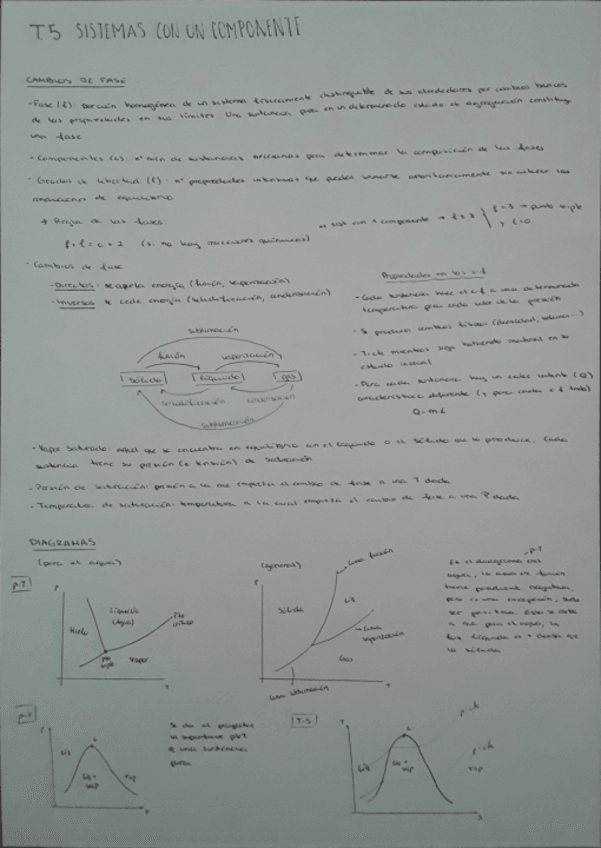 T.5 SISTEMAS CON UN COMPONENTE
CAMBIOS DE FASE
- Fase (f): porción homogénea de un sistema físicamente distinguible de sus alrededores por cambios bruscos
de las propiedades en sus límites. Una sustancia pura en un determinado estado de agregación constituye
una fase
- Componentes (c): nº mín de sustancias necesarias para determinar la composición de las fases
- Grados de libertad (l): nº propiedades intensivas que pueden variarse arbitrariamente sin alterar las
condiciones de equilibrio
→ Regla de las fases
f + l = c + 2 (si no hay reacciones químicas)
sist con 1 componente → f ≤ 3
f = 3 → punto triple
y l = 0
- Cambios de fase
- Directos: se aporta energía (fusión, vaporización)
- Inversos: se cede energía (solidificación, condensación)
Propiedades en los c.f
- Cada sustancia hace el c.f a una determinada
temperatura para cada valor de la presión
- Se producen cambios físicos (densidad, volumen...)
- T cte mientras siga habiendo material en su
estado inicial
- Para cada sustancia hay un calor latente (Q)
característico diferente (y para cada c.f tmb)
Q = m·L
sublimación
fusión
vaporización
sólido
líquido
gas
solidificación
condensación
sublimación
- Vapor saturado: aquel que se encuentra en equilibrio con el líquido o el sólido que lo produce. Cada
sustancia tiene su presión (o tensión) de saturación
- Presión de saturación: presión a la que empieza el cambio de fase a una T dada
- Temperatura de saturación: temperatura a la cual empieza el cambio de fase a una P dada
DIAGRAMAS
(para el agua)
(general)
p-T
P
Hielo
Líquido
(Agua)
Pto
crítico
Pto
triple
Vapor
T
P
Sólido
Curva fusión
Liq
Curva
vaporización
Gas
Curva sublimación
T
p-T
En el diagrama del
agua, la curva de fusión
tiene pendiente negativa,
pero es una excepción, suele
ser positiva. Esto se debe
a que para el agua, la
fase líquida es + densa que
la sólida
p-v
P
Liq
Liq +
vap
vap
Se da al proyectar
la superficie pvT
de una sustancia
pura
T-S
T
Liq
Liq +
vap
vap
p = cte
p = cte
S